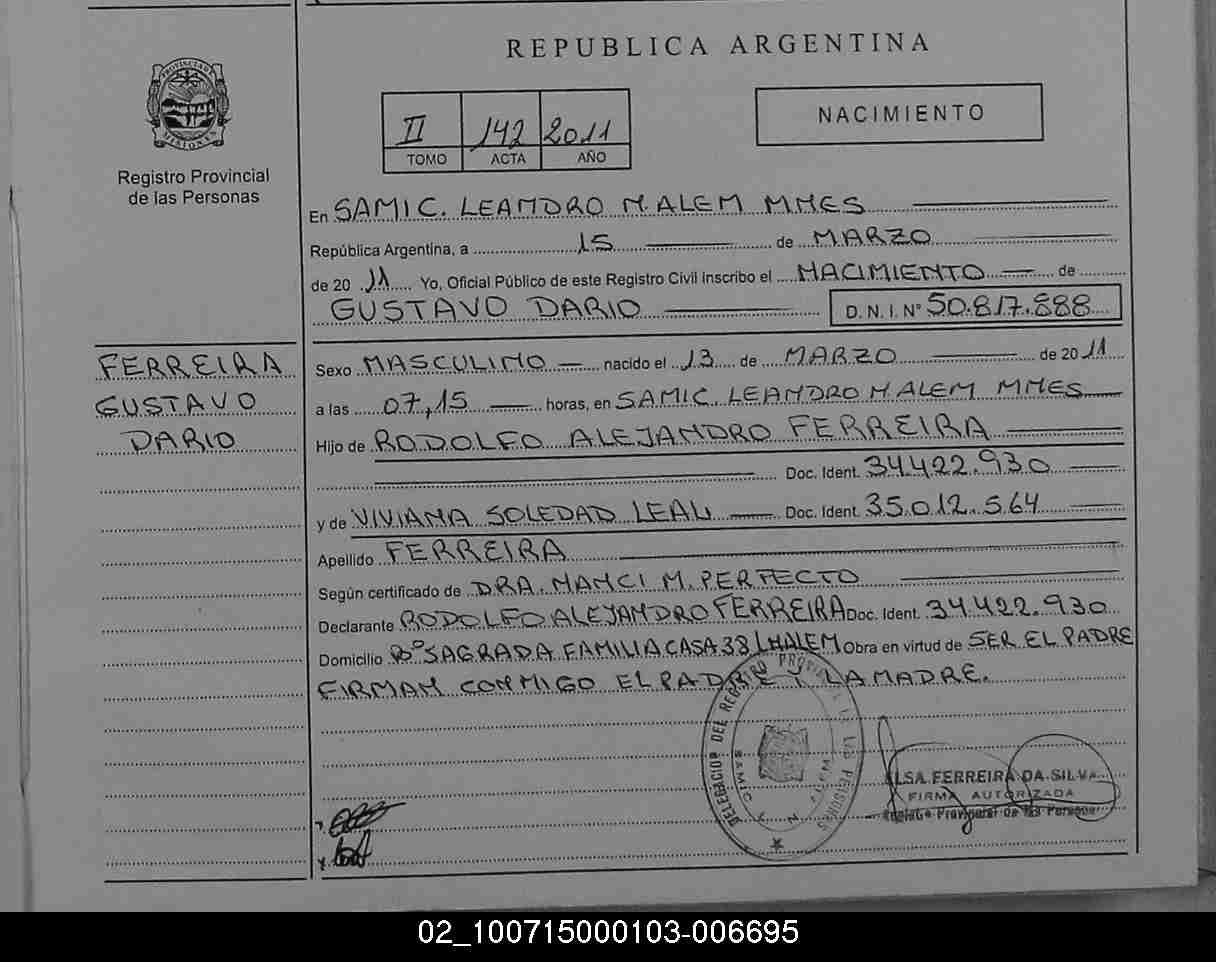 REPUBLICA ARGENTINA
PROVINCIA DE MISIONES
Registro Provincial
de las Personas
II 142 2011
TOMO ACTA AÑO
NACIMIENTO
En SAMIC. LEANDRO N. ALEM MNES
República Argentina, a 15 de MARZO
de 20 11 Yo, Oficial Público de este Registro Civil inscribo el NACIMIENTO de
GUSTAVO DARIO D. N. I. N° 50.817.888
FERREIRA
GUSTAVO
DARIO
Sexo MASCULINO nacido el 13 de MARZO de 20 11
a las 07,15 horas, en SAMIC. LEANDRO N. ALEM MNES
Hijo de RODOLFO ALEJANDRO FERREIRA
Doc. Ident. 34.422.930
y de VIVIANA SOLEDAD LEAL Doc. Ident. 35.012.564
Apellido FERREIRA
Según certificado de DRA. NANCI M. PERFECTO
Declarante RODOLFO ALEJANDRO FERREIRA Doc. Ident. 34.422.930
Domicilio B° SAGRADA FAMILIA CASA 38 LNALEM Obra en virtud de SER EL PADRE
FIRMAN CONMIGO EL PADRE Y LA MADRE.
DELEGACION DEL REGISTRO PROVINCIAL DE LAS PERSONAS
SAMIC
ELSA FERREIRA DA SILVA
FIRMA AUTORIZADA
Registro Provincial de las Personas
02_100715000103-006695